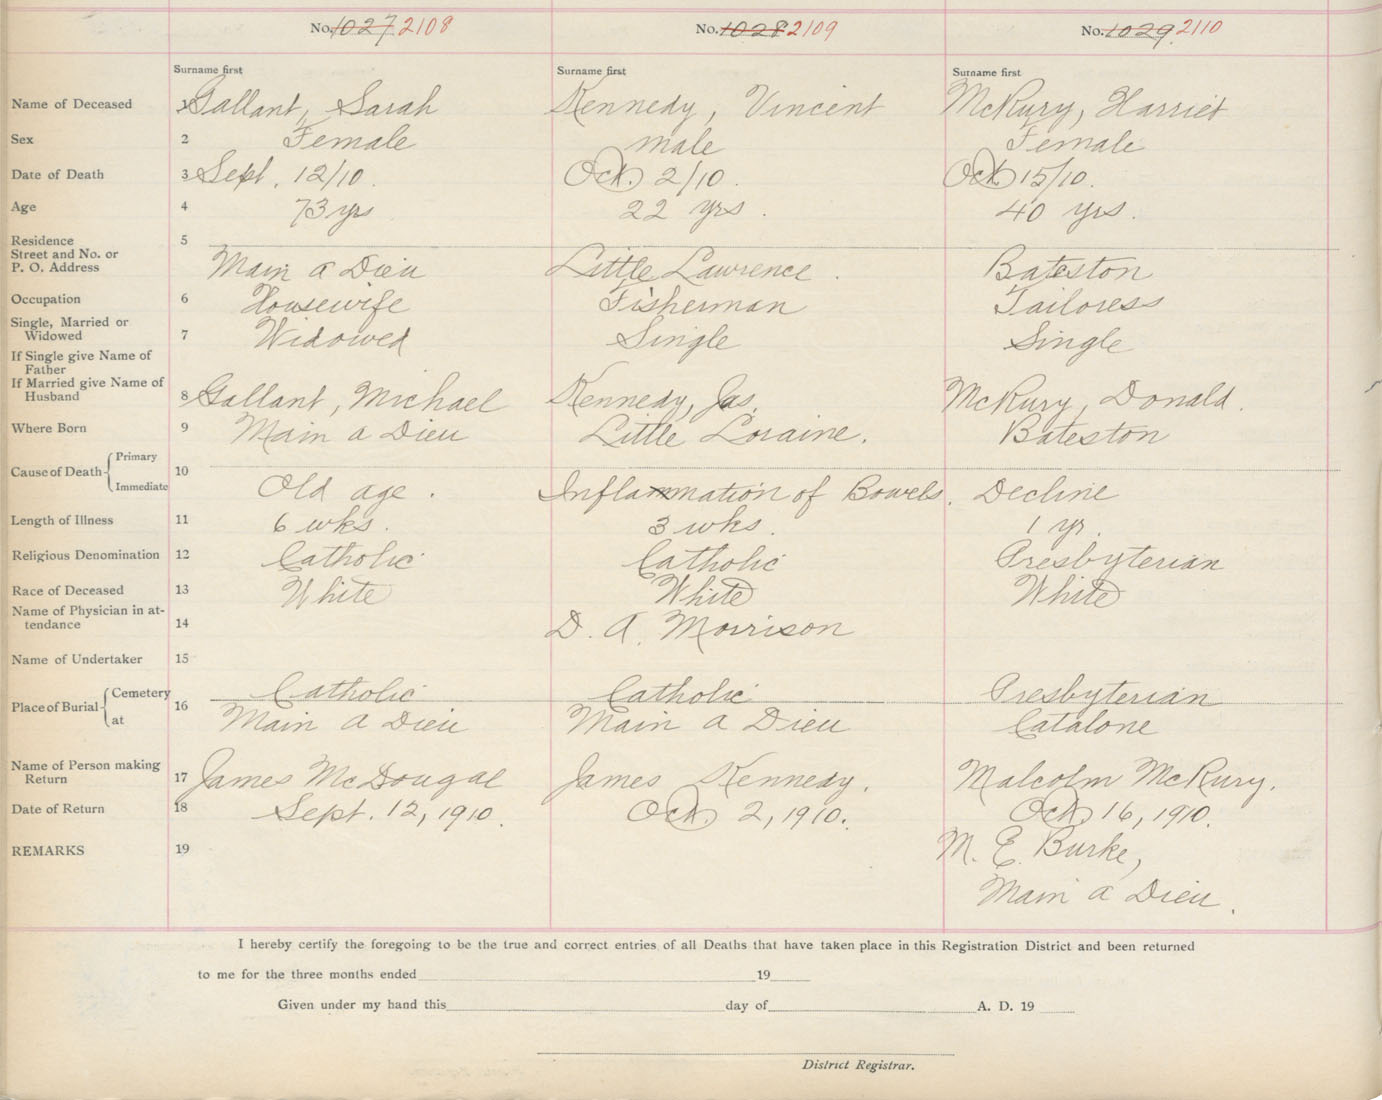 No. 1027 2108 No. 1028 2109 No. 1029 2110
Surname first Surname first Surname first
Name of Deceased 1 Gallant, Sarah Kennedy, Vincent McRury, Harriet
Sex 2 Female male Female
Date of Death 3 Sept. 12/10. Oct. 2/10. Oct 15/10.
Age 4 73 yrs 22 yrs. 40 yrs.
Residence 5
Street and No. or
P. O. Address Main a Dieu Little Lawrence. Bateston
Occupation 6 Housewife Fisherman Tailoress
Single, Married or
Widowed 7 Widowed Single Single
If Single give Name of
Father
If Married give Name of
Husband 8 Gallant, Michael Kennedy, Jas. McRury, Donald.
Where Born 9 Main a Dieu Little Loraine. Bateston
Cause of Death 10 Primary
Immediate Old age. Inflammation of Bowels. Decline
Length of Illness 11 6 wks. 3 wks. 1 yr.
Religious Denomination 12 Catholic Catholic Presbyterian
Race of Deceased 13 White White White
Name of Physician in at-
tendance 14 D. A. Morrison
Name of Undertaker 15
Place of Burial 16 Cemetery Catholic Catholic Presbyterian
at Main a Dieu Main a Dieu Catalone
Name of Person making
Return 17 James McDougal James Kennedy. Malcolm McRury.
Date of Return 18 Sept. 12, 1910. Oct. 2, 1910. Oct. 16, 1910.
REMARKS 19 M. E. Burke,
Main a Dieu.
I hereby certify the foregoing to be the true and correct entries of all Deaths that have taken place in this Registration District and been returned
to me for the three months ended 19
Given under my hand this day of A. D. 19
District Registrar.